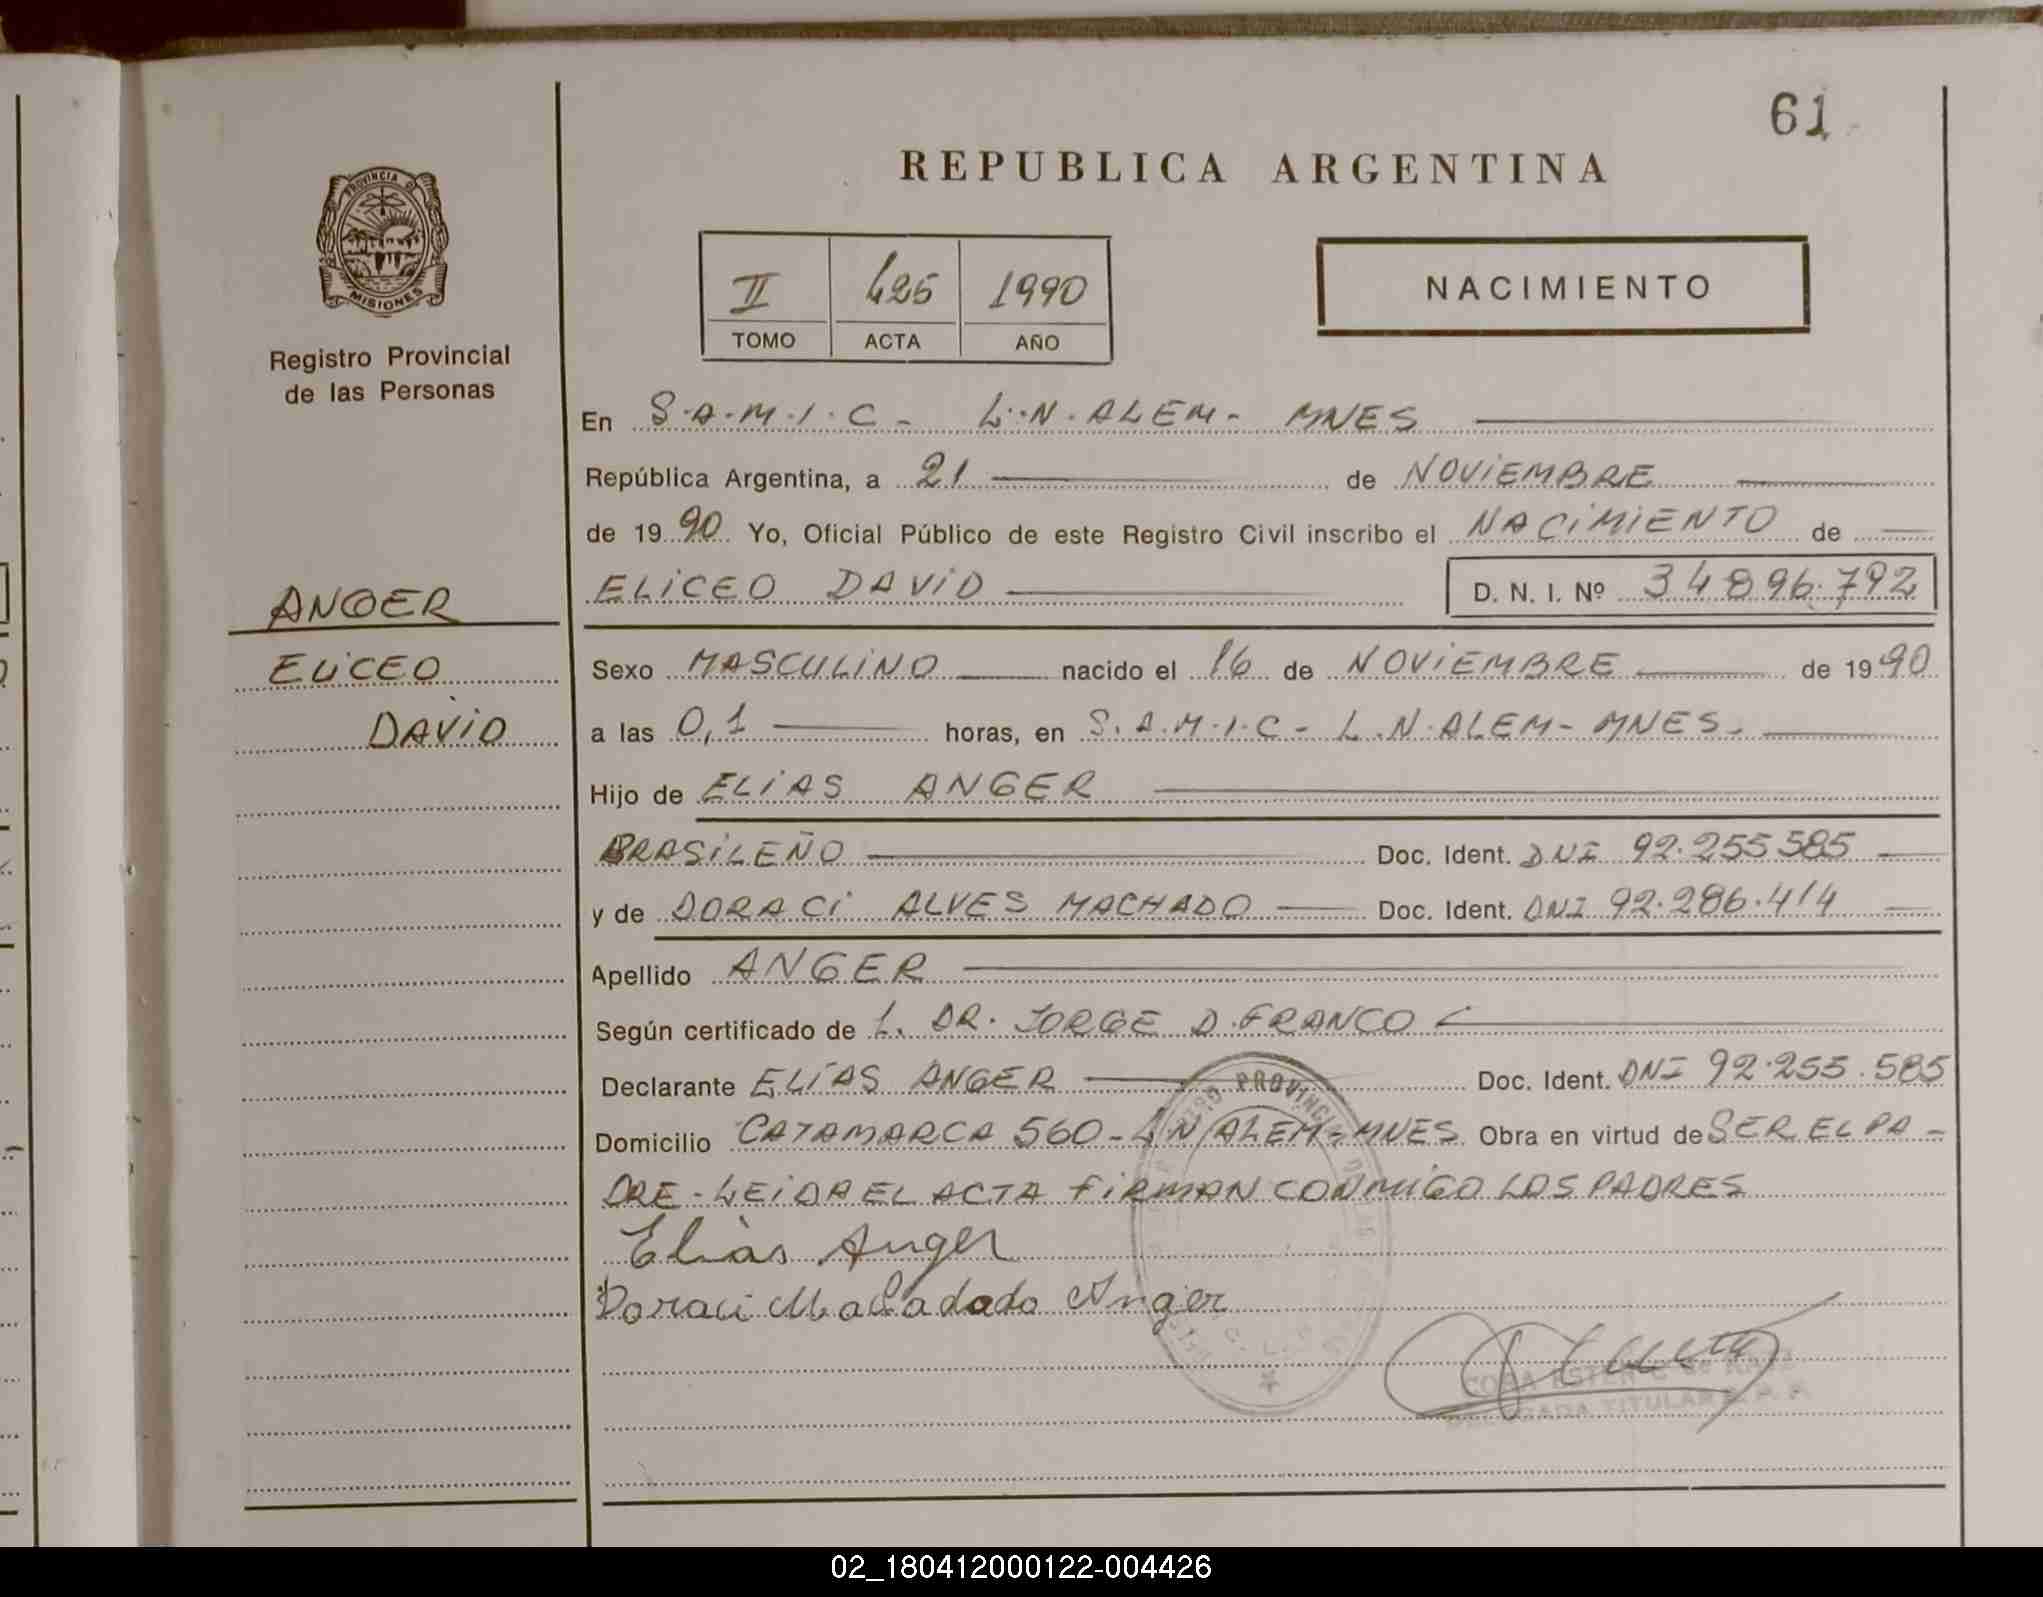 61
REPUBLICA ARGENTINA
PROVINCIA DE
MISIONES
Registro Provincial
de las Personas
II 425 1990
TOMO ACTA AÑO
NACIMIENTO
En S.A.M.I.C - L.N. ALEM - MNES
República Argentina, a 21 de NOVIEMBRE
de 1990 Yo, Oficial Público de este Registro Civil inscribo el NACIMIENTO de
ELICEO DAVID D. N. I. Nº 34896.792
ANGER
ELICEO
DAVID
Sexo MASCULINO nacido el 16 de NOVIEMBRE de 1990
a las 0,1 horas, en S.A.M.I.C - L.N. ALEM - MNES -
Hijo de ELIAS ANGER
BRASILEÑO Doc. Ident. DNI 92.255585
y de DORACI ALVES MACHADO Doc. Ident. DNI 92.286.414
Apellido ANGER
Según certificado de L. DR. JORGE D. FRANCO
Declarante ELIAS ANGER Doc. Ident. DNI 92.255.585
Domicilio CATAMARCA 560 - L N ALEM - MNES Obra en virtud de SER EL PA -
DRE - LEIDA EL ACTA FIRMAN CONMIGO LOS PADRES
Eliàs Anger
Doraci Anger
PROVINCIAL
TITULAR
02_180412000122-004426